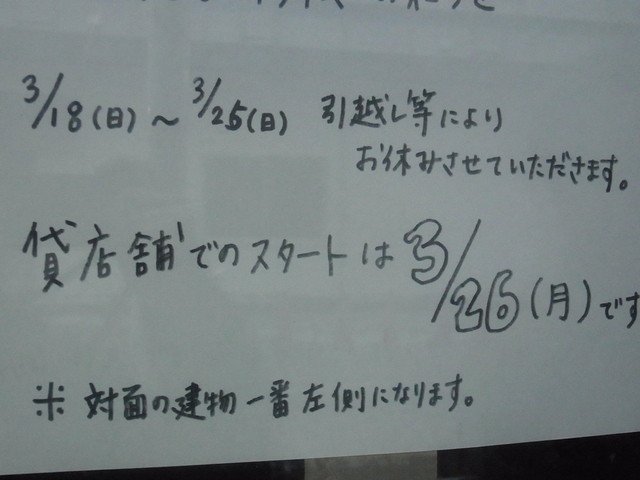 3/18(日)～3/25(日) 引越し等により
お休みさせていただきます。
貸店舗でのスタートは 3/26(月)です
※ 対面の建物一番左側になります。